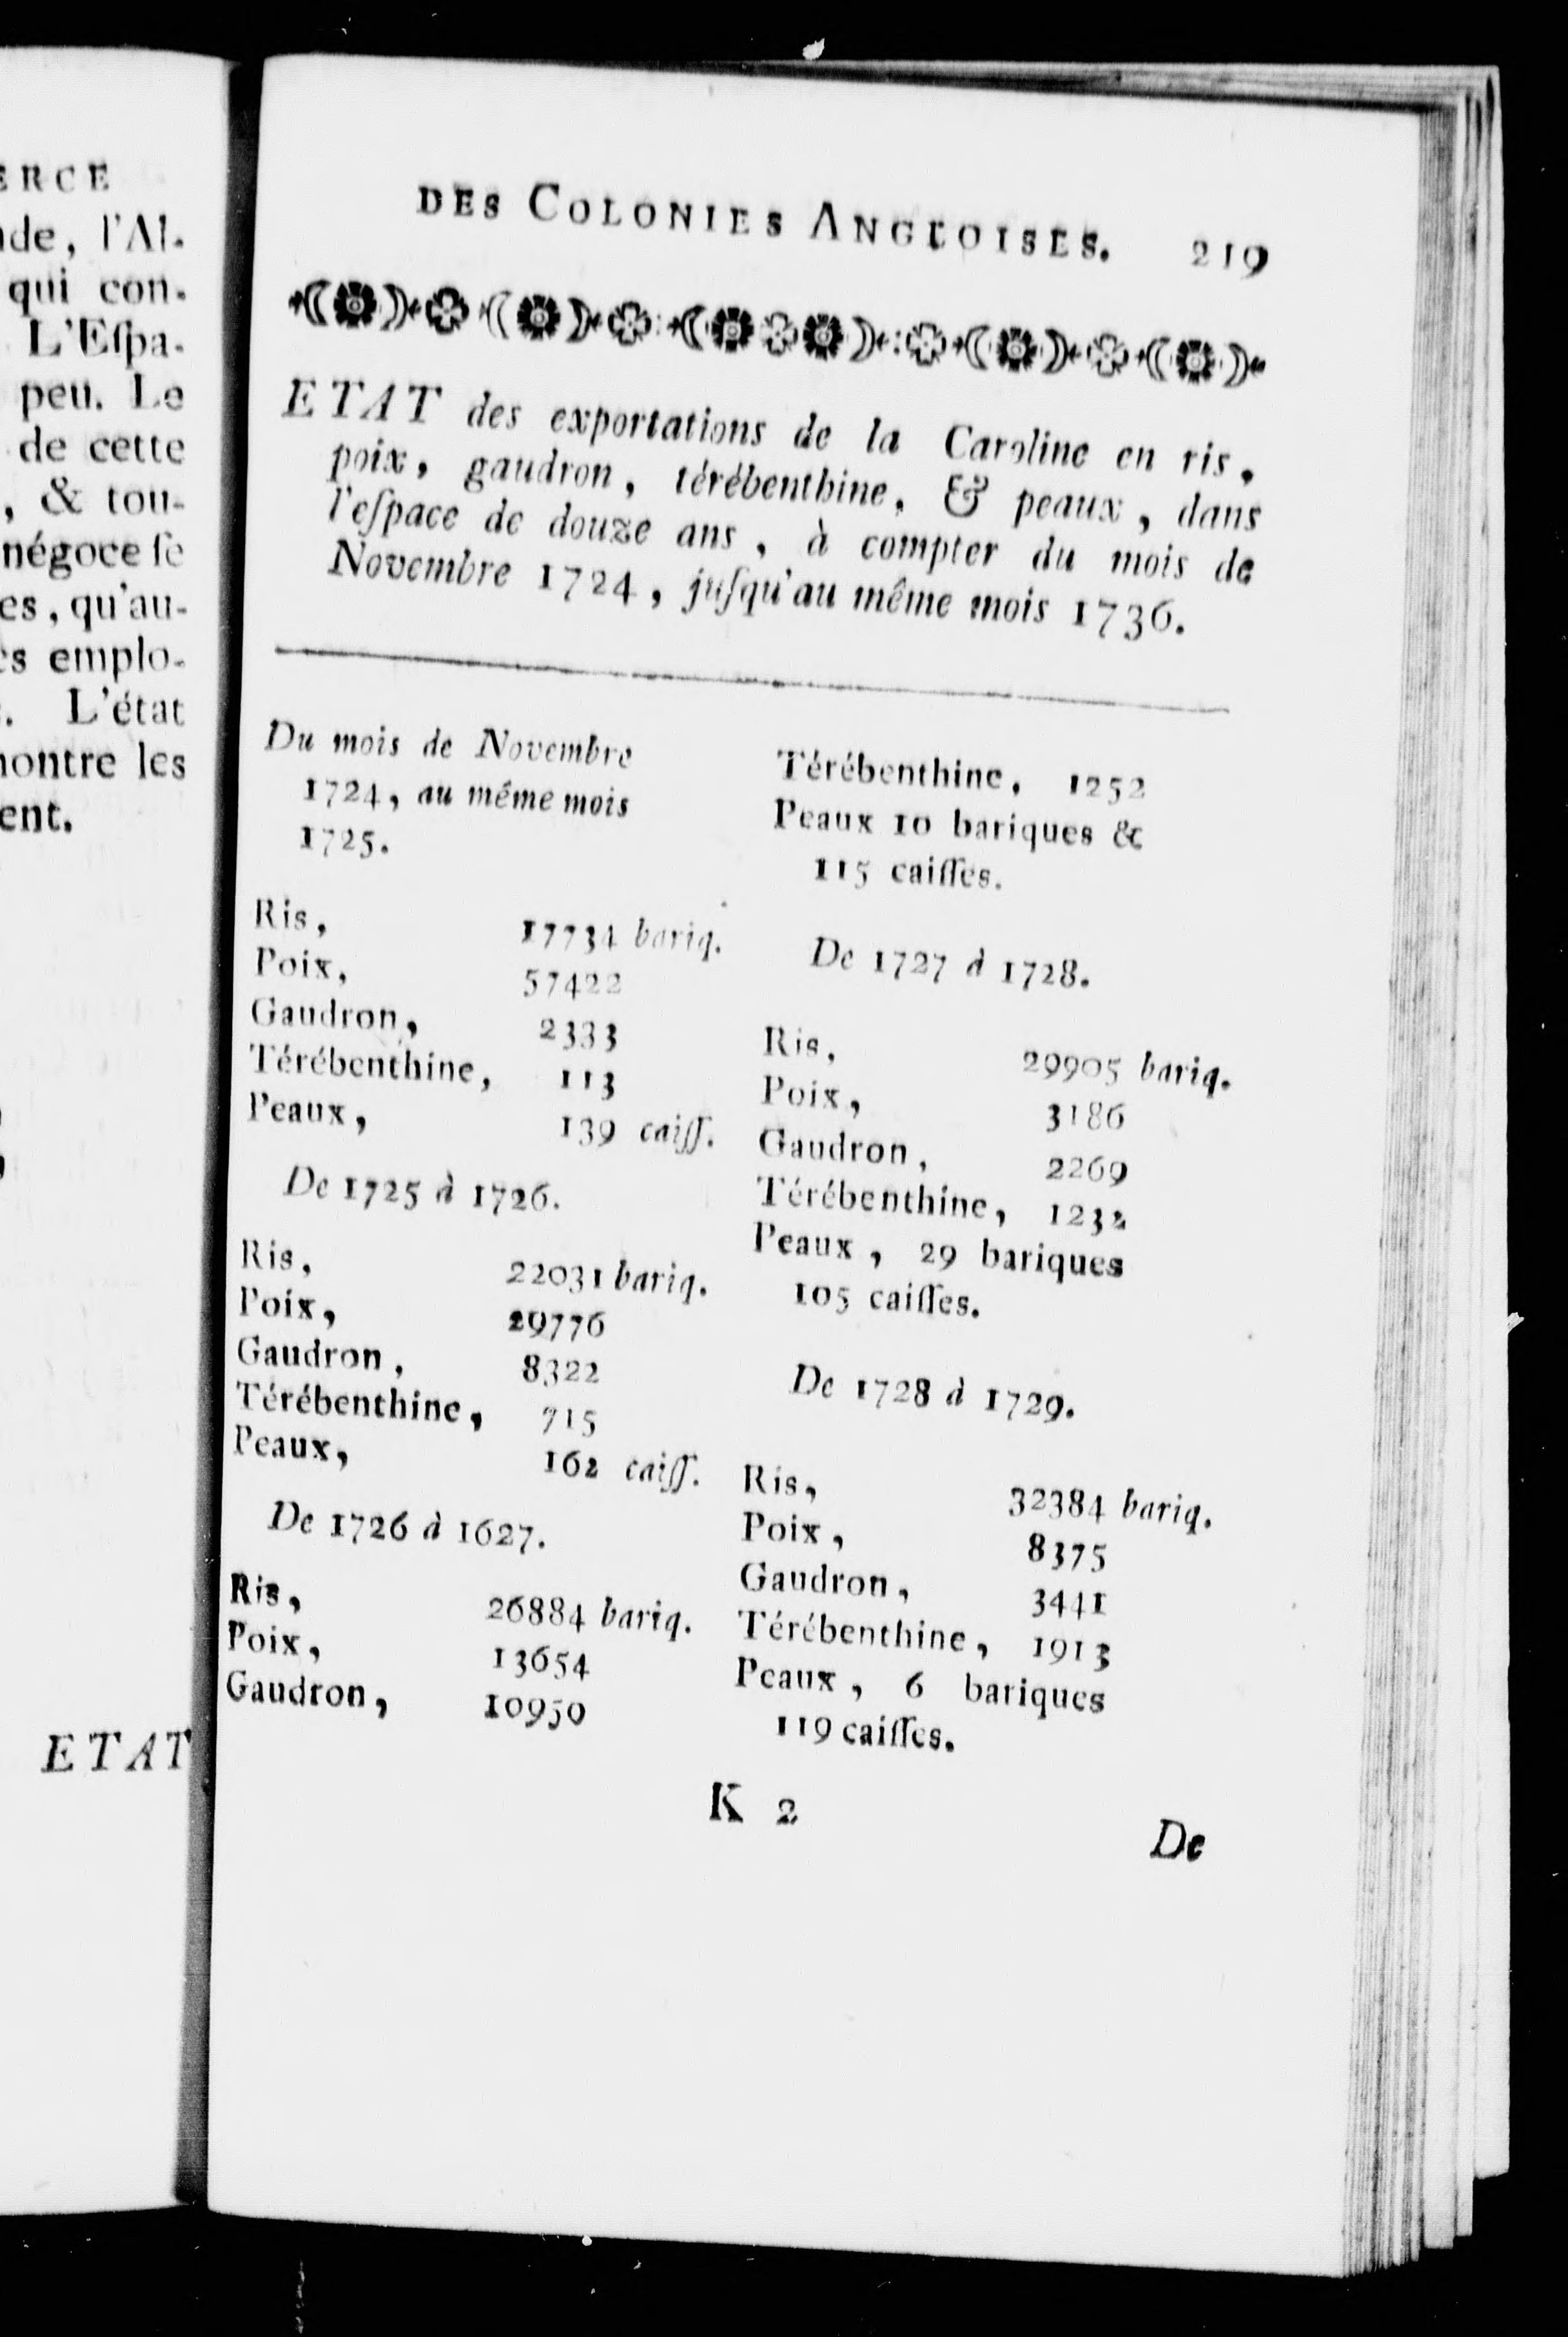 ERCE
de, l'Al-
qui con-
L'Eſpa-
peu. Le
de cette
, & tou-
négoce ſe
es, qu'au-
s emplo-
. L'état
montre les
ent.
ETAT
DES COLONIES ANGLOISES. 219
ETAT des exportations de la Caroline en ris,
poix, gaudron, térébenthine, & peaux, dans
l'eſpace de douze ans, à compter du mois de
Novembre 1724, juſqu'au même mois 1736.
Du mois de Novembre
1724, au même mois
1725.
Ris, 17734 bariq.
Poix, 57422
Gaudron, 2333
Térébenthine, 113
Peaux, 139 caiſſ.
De 1725 à 1726.
Ris, 22031 bariq.
Poix, 29776
Gaudron, 8322
Térébenthine, 715
Peaux, 162 caiſſ.
De 1726 à 1627.
Ris, 26884 bariq.
Poix, 13654
Gaudron, 10950
Térébenthine, 1252
Peaux 10 bariques &
115 caiſſes.
De 1727 à 1728.
Ris, 29905 bariq.
Poix, 3186
Gaudron, 2269
Térébenthine, 1232
Peaux, 29 bariques
105 caiſſes.
De 1728 à 1729.
Ris, 32384 bariq.
Poix, 8375
Gaudron, 3441
Térébenthine, 1913
Peaux, 6 bariques
119 caiſſes.
K 2
De